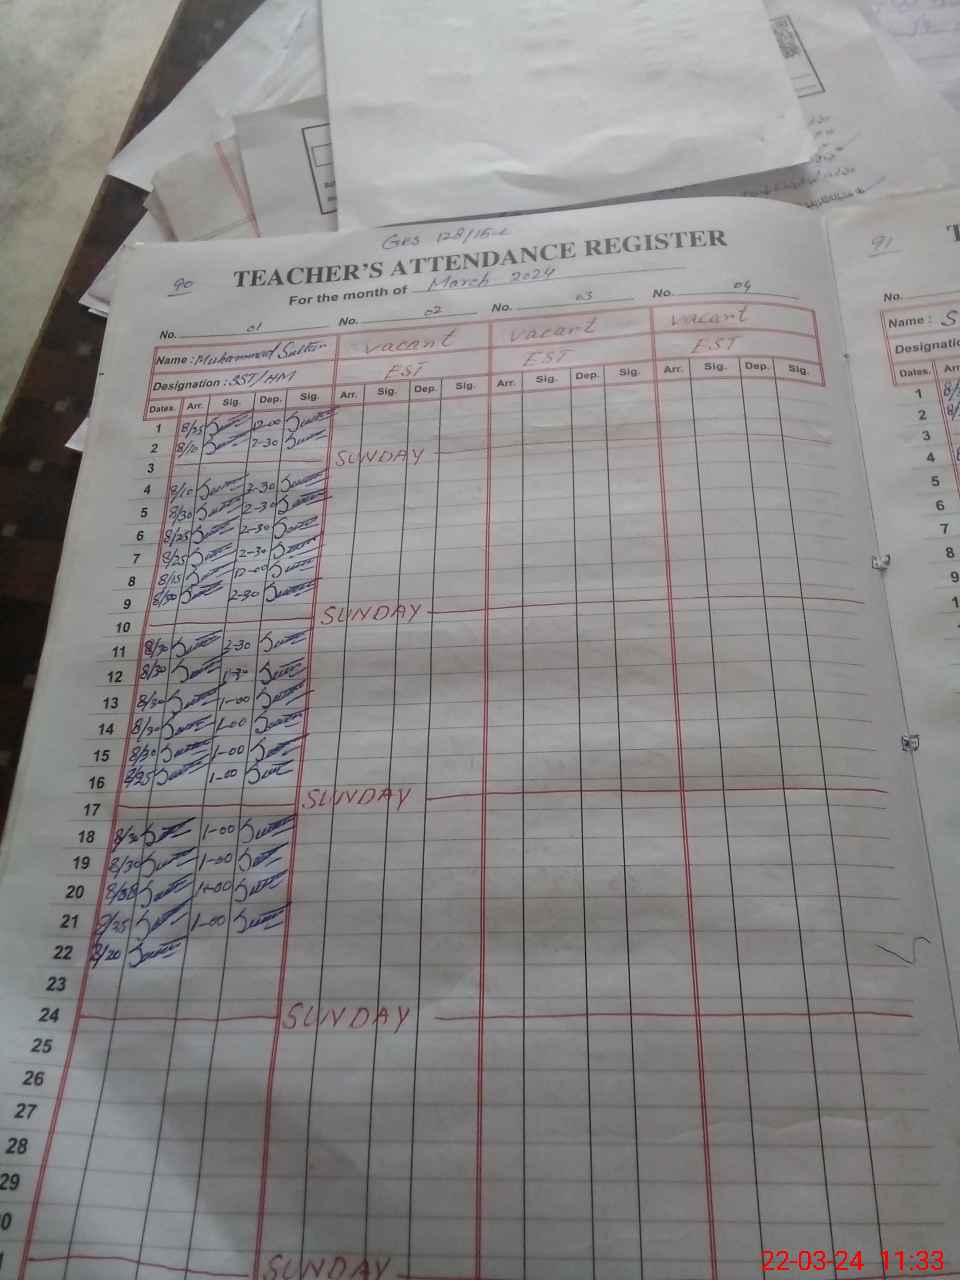 GES 128/15-L
90
TEACHER'S ATTENDANCE REGISTER
91
For the month of March 2024
No. 01 No. 02 No. 03 No. 04
No.
Name : Muhammad Sultan vacant vacant vacant
Name : S
Designation : SST/HM EST EST EST
Designatio
Dates. Arr. Sig. Dep. Sig. Arr. Sig. Dep. Sig. Arr. Sig. Dep. Sig. Arr. Sig. Dep. Sig.
Dates. Ar
1 8/25 12-00
2 8/10 2-30
3 SUNDAY
4 8/10 2-30
5 8/30 2-30
6 8/25 2-30
7 8/25 2-30
8 8/15 12-00
9 8/30 2-30
10 SUNDAY
11 8/30 2-30
12 8/30
13 8/30 1-00
14 8/30 1-00
15 8/30 1-00
16 8/25 1-00
17 SUNDAY
18 8/30 1-00
19 8/30 1-00
20 1-00
21 8/25 1-00
22 8/20
23
24 SUNDAY
25
26
27
28
29
SUNDAY
1
2
3
4
5
6
7
8
9
22-03-24 11:33